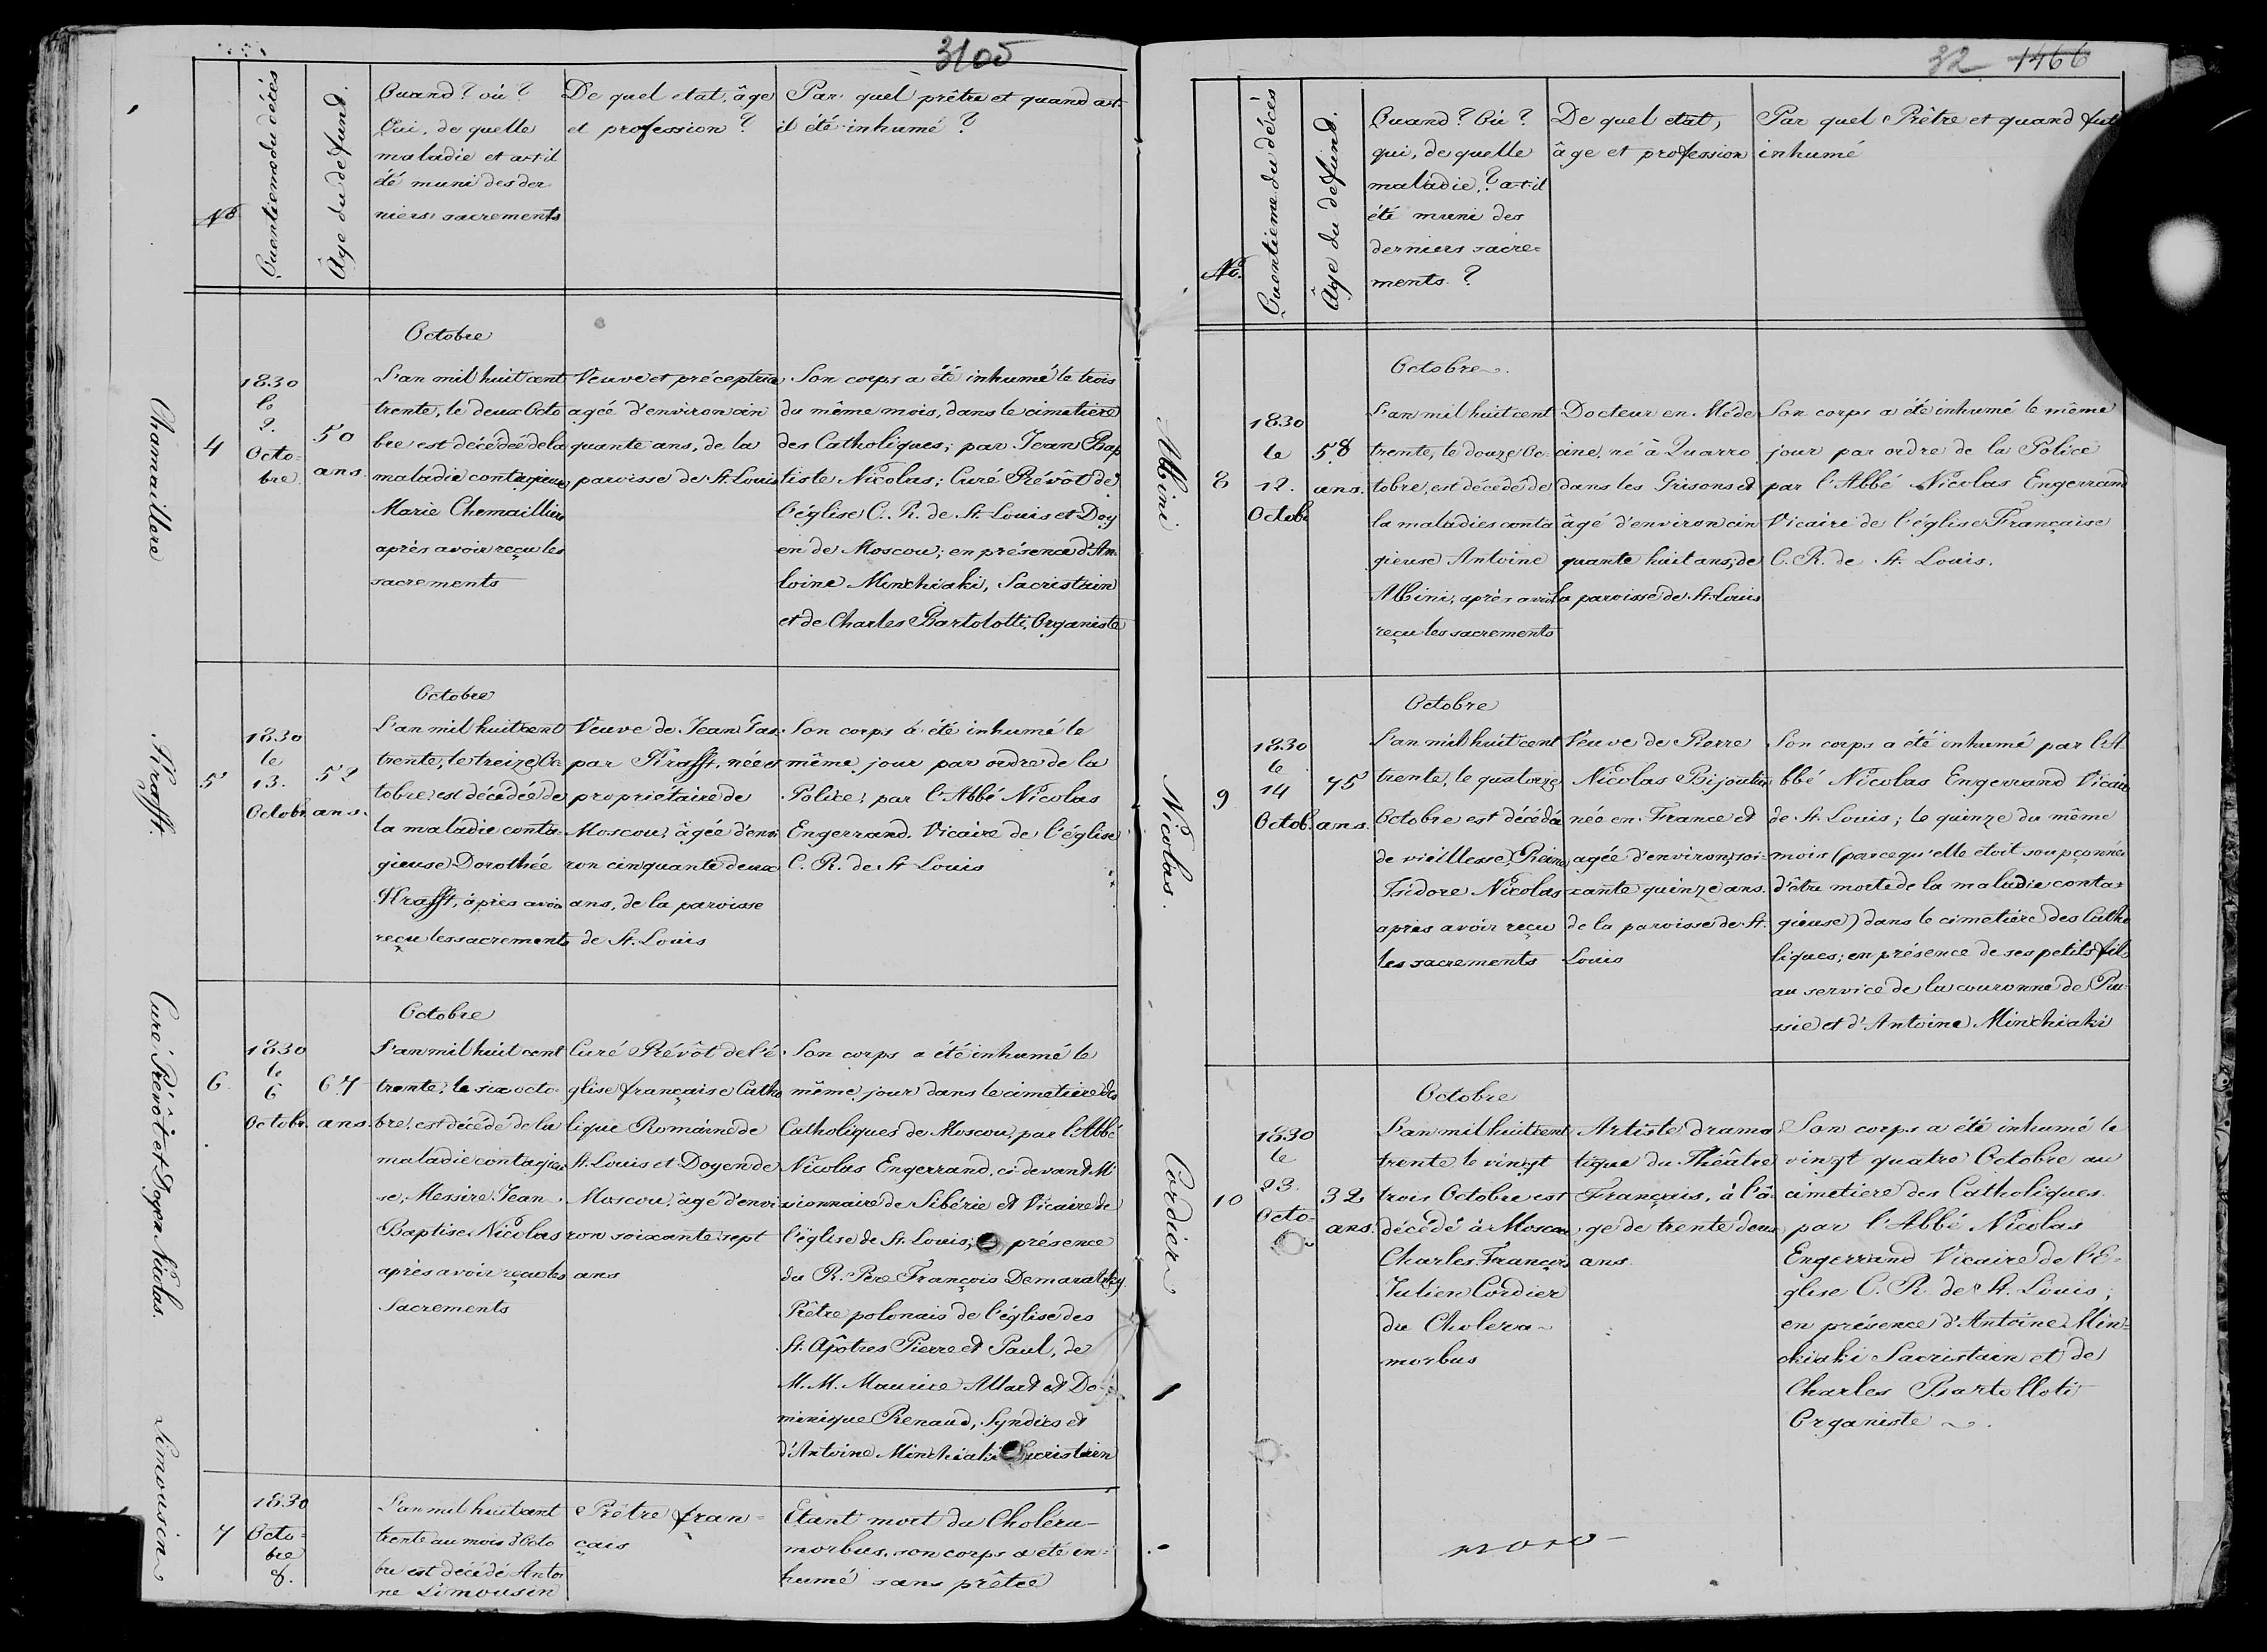 3105
No
Quentieme du décès
Âge du défund.
Quand? où?
Qui, de quelle
maladie et a-t-il
été muni des der
niers sacrements
De quel etat, âge
et profession?
Par quel prêtre et quand a-t-
il été inhumé?
Chamaillere
4
1830
le
2.
Octo-
bre
50
ans.
Octobre
L'an mil huit cent
trente, le deux Octo
bre est décédée de la
maladie contagieuse
Marie Chemailliere
après avoir reçu les
sacrements
Veuve et préceptrice
agée d'environ cin
quante ans, de la
paroisse de St. Louis
Son corps a été inhumé le trois
du même mois, dans le cimetiere
des Catholiques; par Jean Bap
tiste Nicolas; Curé Prévôt de
l'église C. R. de St. Louis et Doy
en de Moscou; en présence d'An
toine Minchiaki, Sacristain
et de Charles Bartolotti, Organiste
Krafft.
5
1830
le
13.
Octobr.
52
ans.
Octobre
L'an mil huit cent
trente, le treize Oc
tobre, est décédée de
la maladie conta-
gieuse Dorothée
Krafft, après avoir
reçu les sacrements
Veuve de Jean Gas-
par Krafft, née et
proprietaire de
Moscou, âgée d'envi
ron cinquante deux
ans, de la paroisse
de St. Louis
Son corps à été inhumé le
même jour par ordre de la
Police; par l'Abbé Nicolas
Engerrand, Vicaire de l'église
C. R. de St Louis
Curé Prévôt et Doyen Nicolas.
6
1830
le
6
Octobr.
67
ans.
Octobre
L'an mil huit cent
trente, le six octo-
bre, est décédé de la
maladie contagieu
se, Messire Jean
Baptise Nicolas
après avoir reçu les
Sacrements
Curé Prévôt de l'é
glise française Catho
lique Romaine de
St. Louis et Doyen de
Moscou, âgé d'envi
ron soixante sept
ans
Son corps a été inhumé le
même jour dans le cimetiere des
Catholiques de Moscou, par l'Abbé
Nicolas Engerrand, ci-devant Mi
ssionnaire de Sibérie et Vicaire de
l'église de St. Louis; présence
du R. Pere François
Prêtre polonais de l'église des
St. Apôtres Pierre et Paul, de
M. M. Maurice Allart et Do-
minique Renaud, Syndics et
d'Antoine Minchiaki Sacristain
Limousin
7
1830
Octo-
bre
8.
L'an mil huit cent
trente au mois d'Octo
bre est décédé Antoi
ne Limousin
Prêtre fran-
çais
Etant mort du Choléra-
morbus, son corps a été in-
humé sans prêtre
32 1466
No.
Quentieme du décès
Âge du défund.
Quand? Où?
qui, de quelle
maladie,? a-t-il
été muni des
derniers sacre-
ments.?
De quel etat,
âge et profession
Par quel Prêtre et quand fut
inhumé
Albini
8
1830
le
12.
Octobr
58
ans.
Octobre.
L'an mil huit cent
trente, le douze Oc-
tobre, est décédé de
la maladies conta
gieuse Antoine
Albini, après avoir
reçu les sacrements
Docteur en Méde
cine, né à Quarro
dans les Grisons et
âgé d'environ cin
quante huit ans, de
la paroisse de St. Louis
Son corps a été inhumé le même
jour par ordre de la Police
par l'Abbé Nicolas Engerrand
Vicaire de l'église Française
C. R. de St. Louis.
Nicolas.
9
1830
le
14
Octob.
75
ans.
Octobre
L'an mil huit cent
trente, le quatorze
Octobre est décédée
de vieillesse, Reine
Isidore Nicolas
après avoir reçu
les sacrements
Veuve de Pierre
Nicolas Bijoutier
née en France et
agée d'environ soi-
xante quinze ans.
de la paroisse de St.
Louis
Son corps a été inhumé par l'A
bbé Nicolas Engerrand Vicaire
de St. Louis; le quinze du même
mois (parcequ'elle étoit soupçonnée
d'être morte de la maladie conta-
gieuse) dans le cimetière des Catho
liques; en présence de ses petits fils
au service de la couronne de Ru
ssie et d'Antoine Minchiaki
Cordier
10
1830
le
23.
Octo-
32
ans.
Octobre
L'an mil huit cent
trente le vingt
trois Octobre est
décédé à Moscou
Charles François
Julien Cordier
du Cholera-
morbus
Artiste drama
tique du Théâtre
Français, à l'â-
ge de trente deux
ans.
Son corps a été inhumé le
vingt quatre Octobre au
cimetiere des Catholiques
par l'Abbé Nicolas
Engerrand Vicaire de l'E-
glise C. R. de St. Louis;
en présence d'Antoine Min-
chiaki Sacristain et de
Charles Bartolloti
Organiste